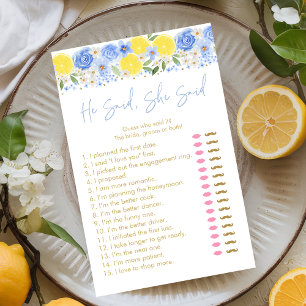 He Said, She Said
Guess who said it!
The bride, groom or both!
1. I planned the first date.
2. I said "I love you" first.
3. I picked out the engagement ring.
4. I proposed.
5. I am more romantic.
6. I'm planning the honeymoon.
7. I'm the better cook.
8. I'm the better dancer.
9. I'm the funny one.
10. I'm the better driver.
11. I initiated the first kiss.
12. I take longer to get ready.
13. I'm the neat one.
14. I'm more patient.
15. I love to shop more.